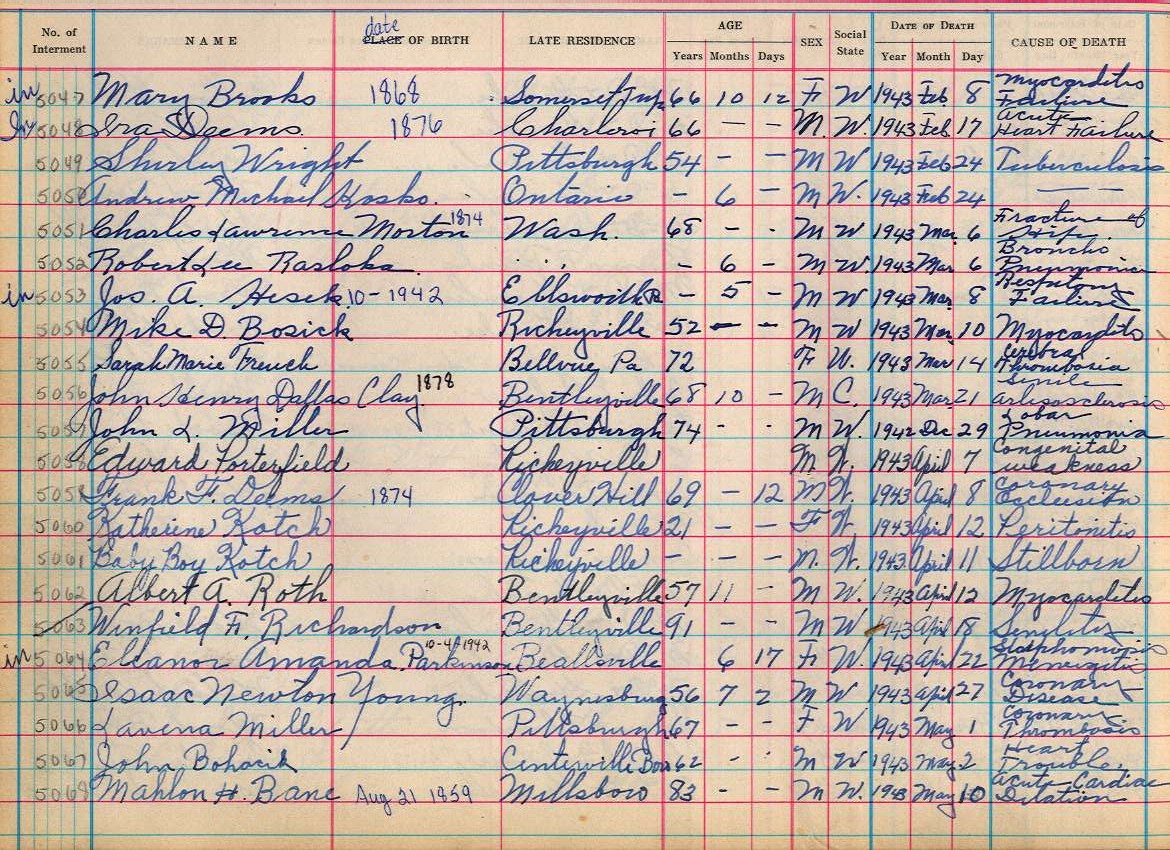 No. of Interment NAME date PLACE OF BIRTH LATE RESIDENCE AGE Years Months Days SEX Social State DATE OF DEATH Year Month Day CAUSE OF DEATH
in 5047 Mary Brooks 1868 Somerset Twp 66 10 12 F W 1943 Feb. 8 Myocarditis Failure
In 5048 Ira Deems. 1876 Charleroi 66 — — M. W. 1943 Feb. 17 Acute Heart Failure
5049 Shirley Wright Pittsburgh 54 - - M W 1943 Feb 24 Tuberculosis
5050 Andrew Michael Hosko. Ontario - 6 — M W. 1943 Feb 24 ——
5051 Charles Lawrence Morton 1874 Wash. 68 - - M W 1943 Mar. 6 Fracture of Hip.
5052 Robert Lee Rasloka. - 6 - M W. 1943 Mar 6 Broncho Pneumonia
in 5053 Jos. A. Hesek 10-1942 Ellsworth Pa - 5 - M W 1943 Mar. 8 Respiratory Failure
5054 Mike D. Bosick Richeyville 52 - - M W 1943 Mar. 10 Myocarditis
5055 Sarah Marie French Bellvue Pa 72 F W. 1943 Mar 14 Cerebral Thrombosia
5056 John Henry Dallas Clay. 1878 Bentleyville 68 10 - M C. 1943 Mar. 21 Senile arteosclerosis
5057 John L. Miller Pittsburgh 74 - - M W. 1942 Dec 29 Lobar Pneumonia
5058 Edward Porterfield Richeyville M. W. 1943 April 7 Congenital weakness
5058 Frank F. Deems 1874 Clover Hill 69 - 12 M W. 1943 April 8 Coronary Occlusion
5060 Katherine Kotch Richeyville 21 - - F W. 1943 April 12 Peritonitis
5061 Baby Boy Kotch Richeyville - - - M. W. 1943. April 11 Stillborn
5062 Albert A. Roth Bentleyville 57 11 - M W. 1943 April 12 Myocarditis
5063 Winfield F. Richardson Bentleyville 91 - - M W 1943 April 18
in 5064 Eleanor Amanda Parkinson 10-4-1942 Beallsville 6 17 F W. 1943 April 22 Menengitis
5065 Isaac Newton Young. Waynesburg 56 7 2 M W 1943 April 27 Coronary Disease
5066 Lavena Miller Pittsburgh 67 - - F W 1943 May 1 Coronary Thrombosis
5067 John Bohacik Centerville Boro 62 - - M W 1943 May 2 Heart Trouble.
5068 Mahlon H. Bane Aug 21 1859 Millsboro 83 - - M W. 1943 May 10 Acute Cardiac Dilation